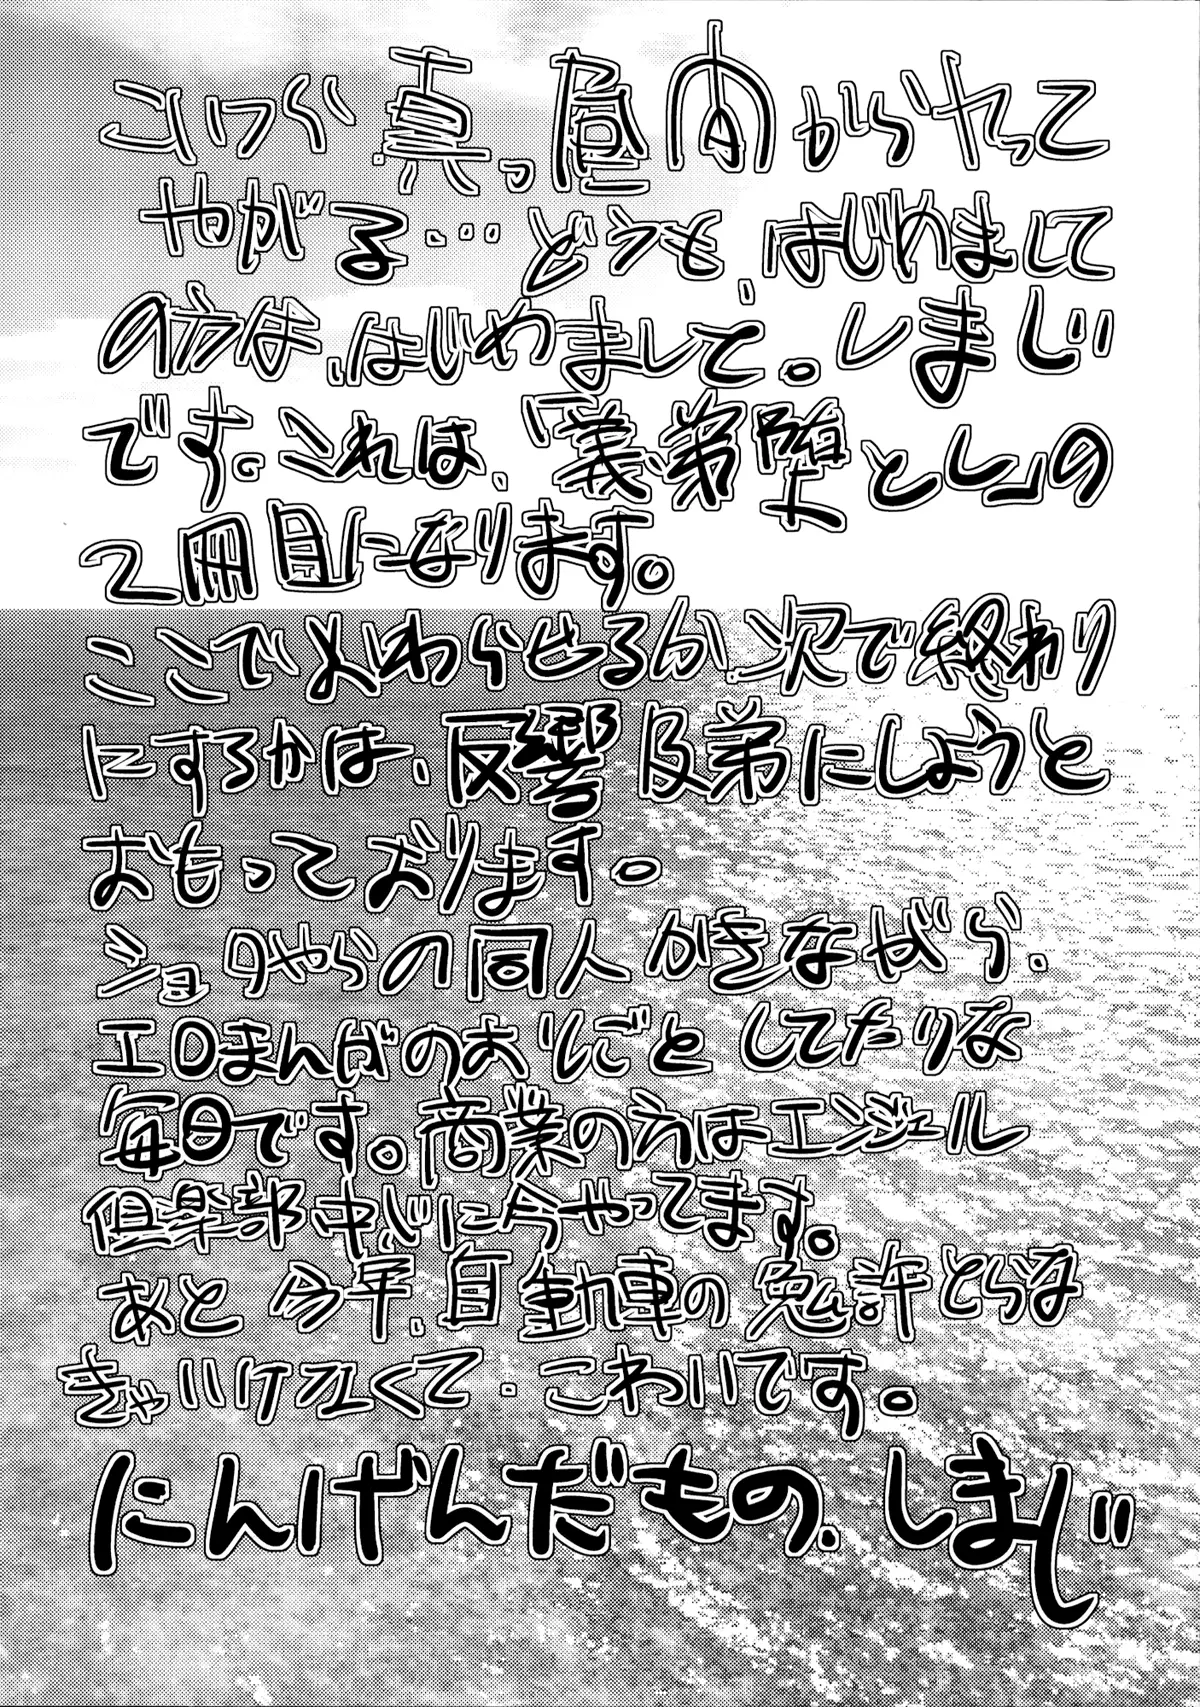 こいつら真っ昼間からヤって
やがる…どうも、はじめまして
の方は、はじめまして。しまじ
です。これは、「義弟堕とし」の
2冊目になります。
ここでおわらせるか次で終わり
にするかは、反響及弟にしようと
おもっております。
ショタやらの同人かきながら、
エロまんがのおしごとしてたりな
毎日です。商業の方はエンジェル
倶楽部中心に今やってます。
あと今年、自動車の免許とらな
きゃいけなくて、こわいです。
にんげんだもの、しまじ